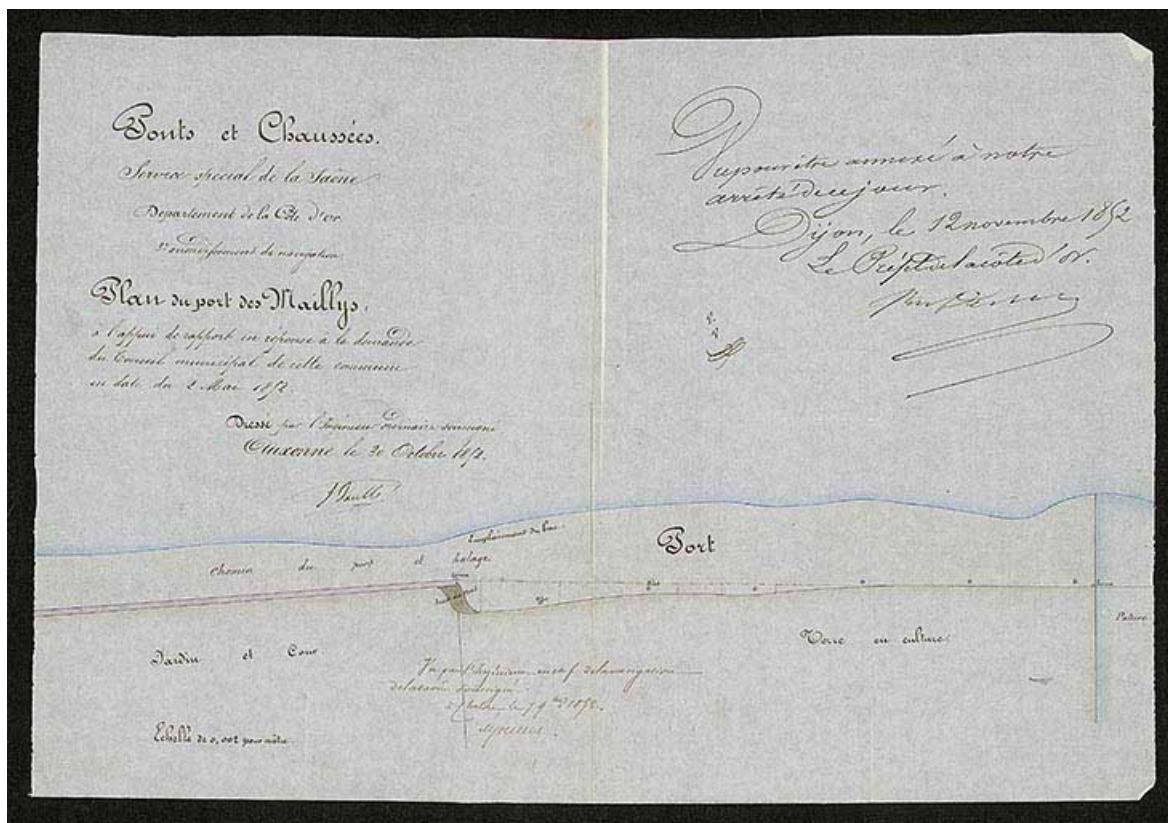 Ponts et Chaussées.
Service spécial de la Saône
Département de la Côte d'or
arrondissement de navigation
Plan du port des Maillys,
à l'appui de rapport en réponse à la demande
du Conseil municipal de cette commune
en date du 2 Mai 1852.
Dressé par l'Ingénieur ordinaire soussigné
Auxonne le 30 Octobre 1852.
Vu pour être annexé à notre
arrêté de ce jour.
Dijon, le 12 novembre 1852
Le Préfet de la côte d'or.
Emplacement du bac
Port
Chemin du port et halage
Jardin et Cour
Terre en culture
Pature
Vu par l'Ingénieur en chef de la navigation
de la Saône soussigné
1852.
Echelle de 0,002 pour mètre